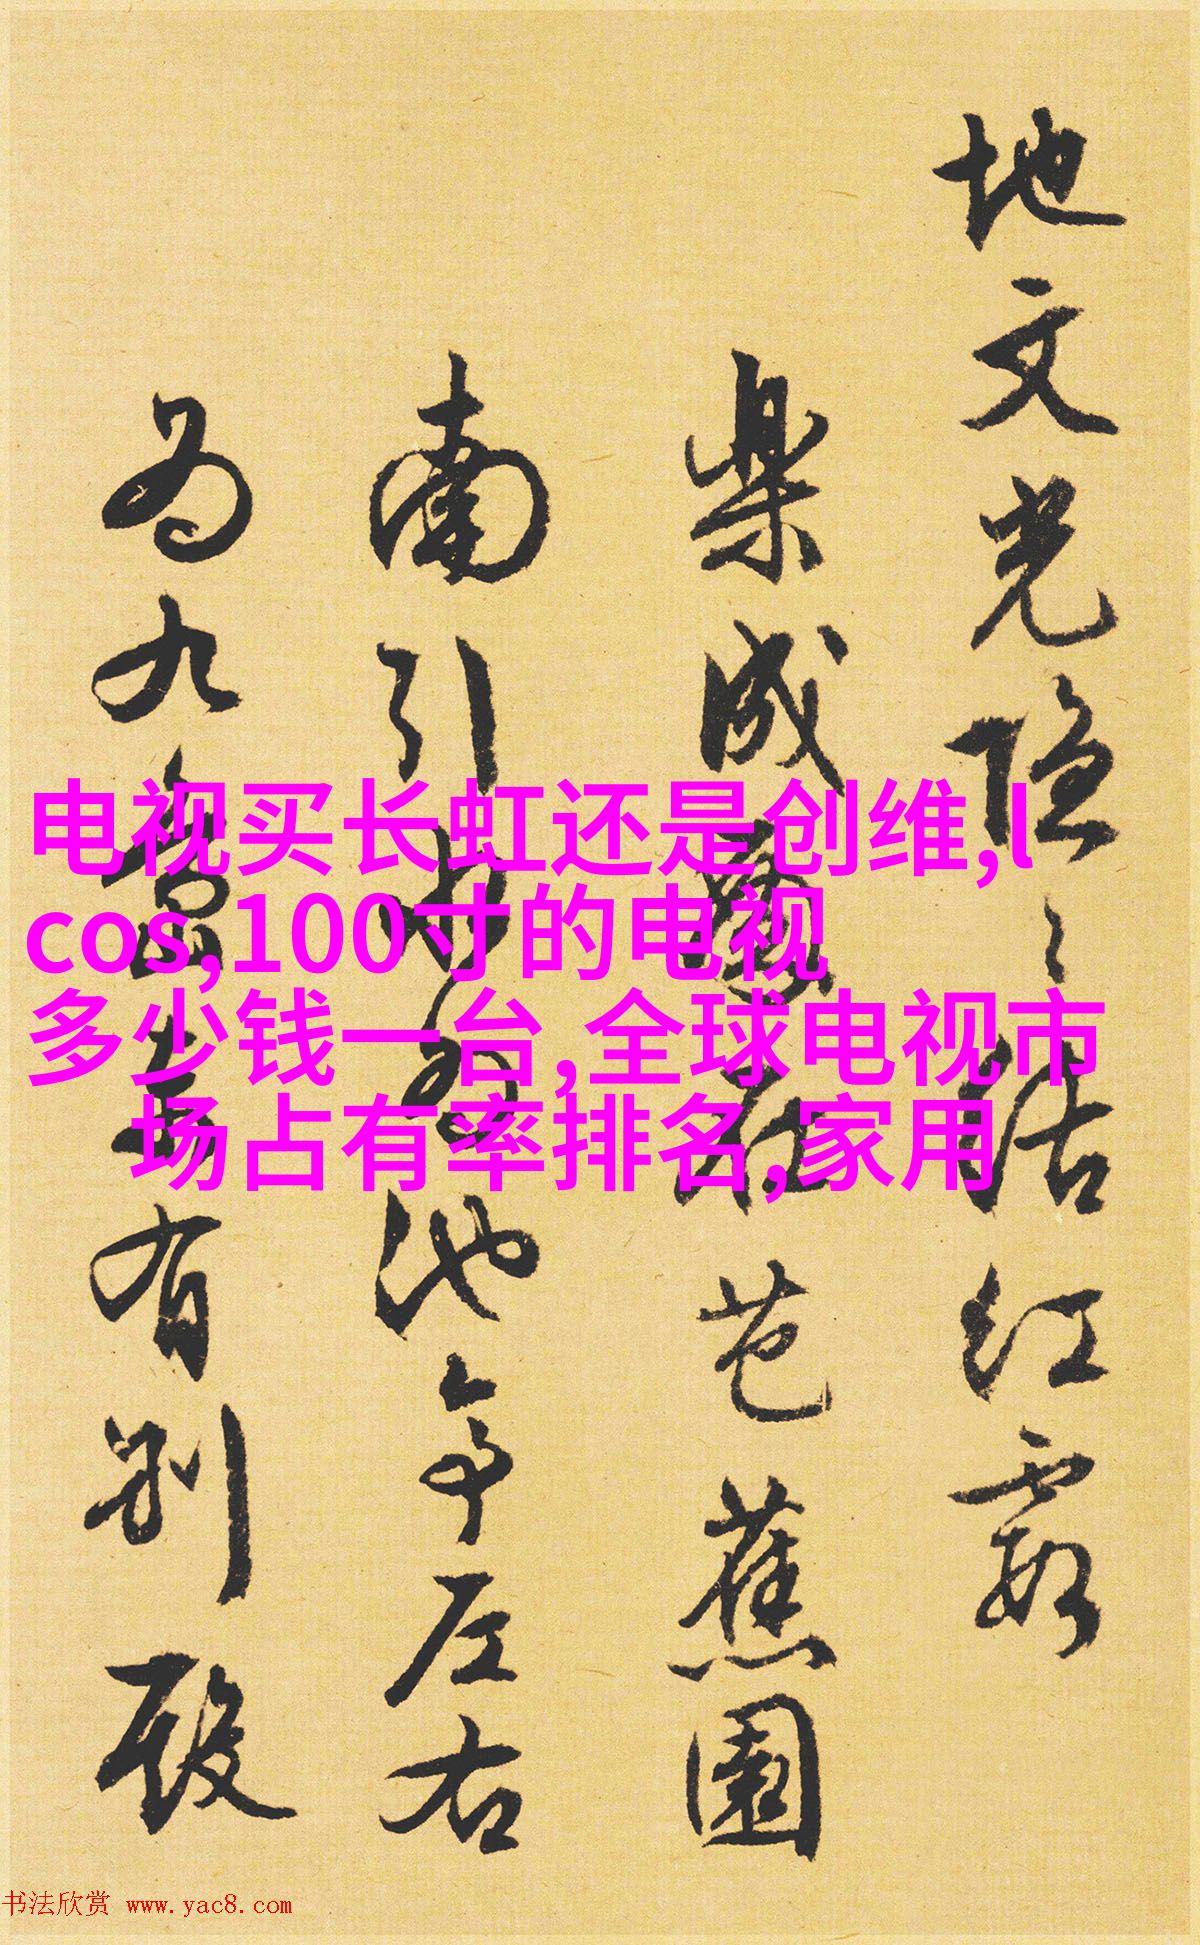 地文光隐〻结红霞
樂成殿在芭蕉園
南引水為池亭左右
為九島皆有别殿
电视买长虹还是创维,l
cos,100寸的电视
多少钱一台,全球电视市
场占有率排名,家用
书法欣赏 www.yac8.com